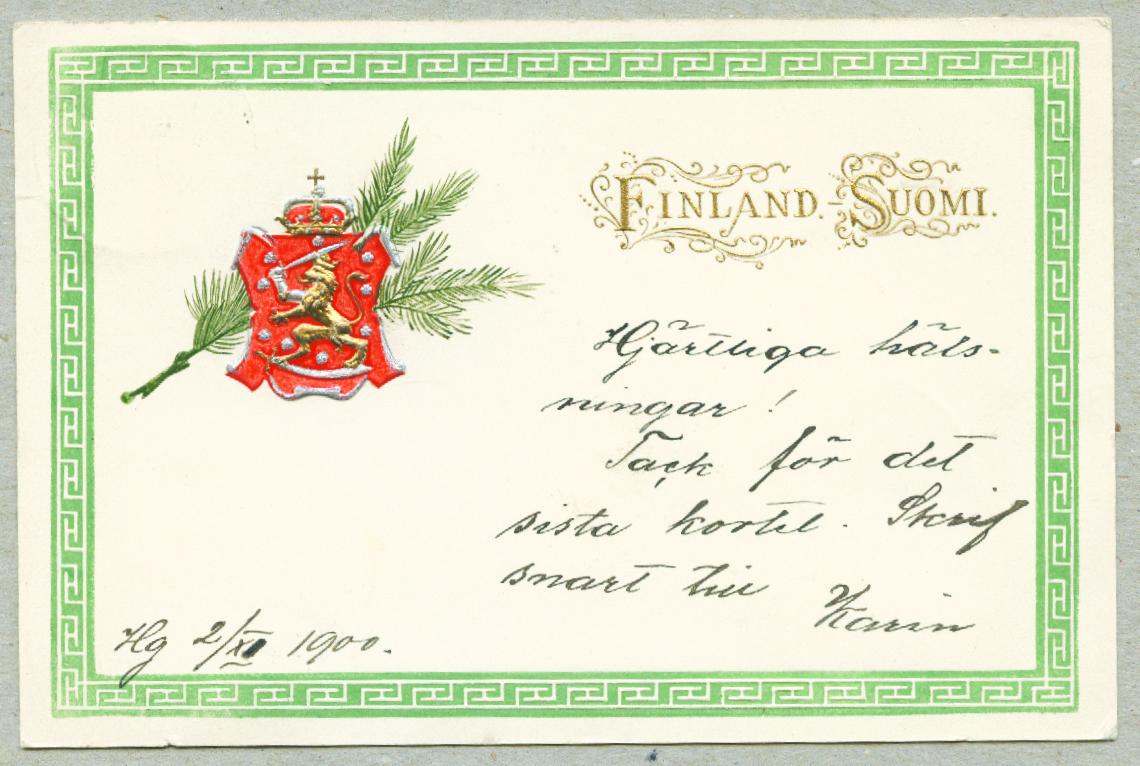 FINLAND. - SUOMI.
Hjärtliga häls-
ningar!
Tack för det
sista kortet. Skrif
snart till
Karin
Hg 2/XI 1900.